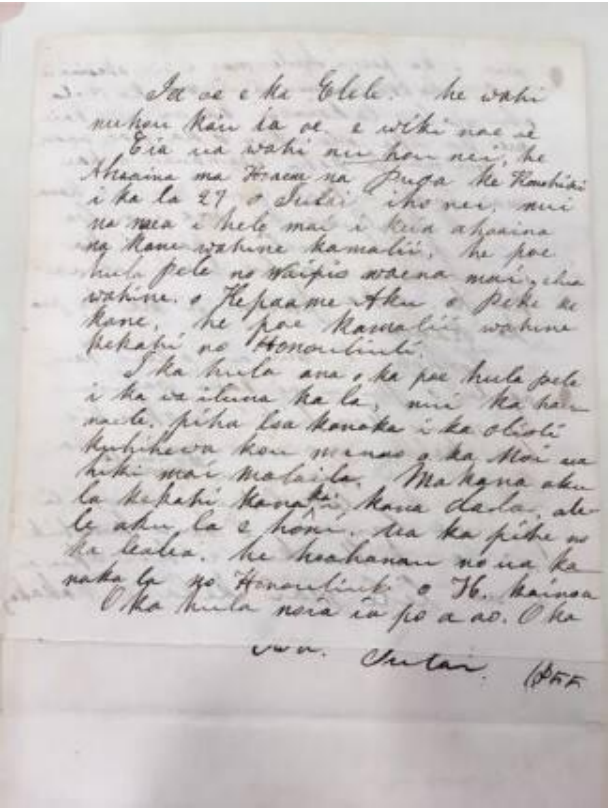 Ia oe e ka Elele. he wahi
nuhou kau ia oe. e wiki nae oe
Eia ua wahi nu hou nei, he
Ahaaina ma Honouliuli na Puoa ke Konohiki
i ka la 27, o Iulai iho nei, nui
na mea i hele mai i keia ahaaina
na kane wahine kamalii, he poe
hula pele no Waipio waena mai, elua
wahine. o Kepaame Aku o Peke ke
kane, he poe kamalii wahine
kekahi no Honouliuli.
I ka hula ana o ka poe hula pele
i ka wa iluna ka la, nui ka hau
naele, piha lea kanaka i ka olioli
kuhihewa kou manao o ka Moi ua
hiki mai malaila. Makana aku
la kekahi kanaka i kana dala, ale
le aku la e honi, ua ka pihe no
ka lealea. he hoahanau no ua ka
naka la no Honouliuli o H. kainoa
O ka hula noia ia po a ao. O ka
Iulai.